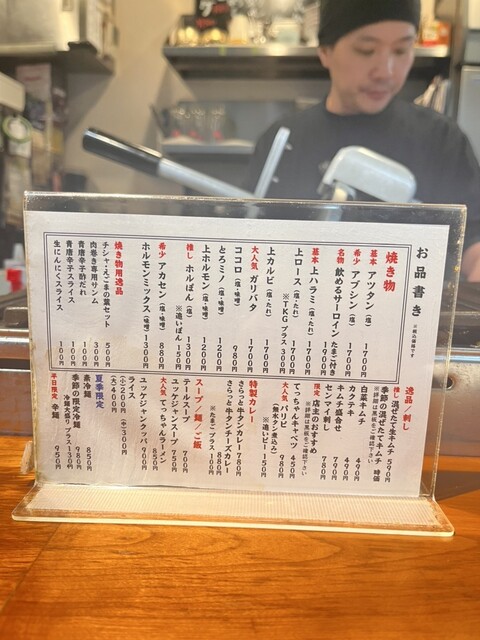 お品書き ※税込価格です
焼き物
基本 アツタン（塩） 1700円
希少 アブシン（塩） 1700円
名物 飲めるサーロイン たまご付き 1900円
基本 上ハラミ（塩・たれ） 1900円
上ロース（塩・たれ） 1700円
※TKG プラス 300円
上カルビ（塩・たれ） 1700円
大人気 ガリバタ 1700円
ココロ（塩・味噌） 980円
とろミノ（塩・味噌） 1200円
上ホルモン（塩・味噌） 1200円
推し ホルぽん（塩） 1300円
※追いぽん 150円
希少 アカセン（塩・味噌） 880円
ホルモンミックス（味噌） 1300円
焼き物用逸品
チシャ・えごまの葉セット 500円
肉巻き専用サンム 300円
青唐辛子酢だれ 100円
青唐辛子スライス 100円
生にんにくスライス 100円
逸品／刺し
推し 混ぜたて生キムチ 590円
季節の混ぜたてキムチ 時価
※詳細は黒板をご確認下さい
白菜キムチ 490円
カクテキ 490円
キムチ盛合せ 790円
センマイ刺し 780円
限定 店主のおすすめ
※詳細は黒板をご確認下さい
てっちゃんキャベツ 450円
大人気 パリピ 980円
（無水タン煮込み）
※追いピー 150円
特製カレー
さらっと牛タンカレー 780円
さらっと牛タンチーズカレー 980円
※たまごプラス 100円
スープ／麺／ご飯
テールスープ 700円
ユッケジャンスープ 750円
大人気 てっちゃんラーメン 850円
ユッケジャンクッパ 900円
ライス （小）200円 （中）300円
（大）400円
夏季限定
素冷麺 850円
季節の限定冷麺 980円
冷麺大盛り プラス 130円
平日限定 辛麺 950円